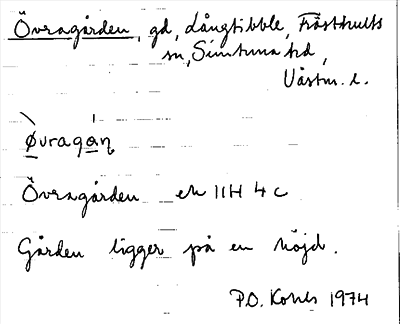 Övragården, gd, Långtibble, Frösthults
sn, Simtuna hd,
Västm. l.
Øvragán
Övragården ek 11H 4c
Gården ligger på en höjd.
P.O. 1974